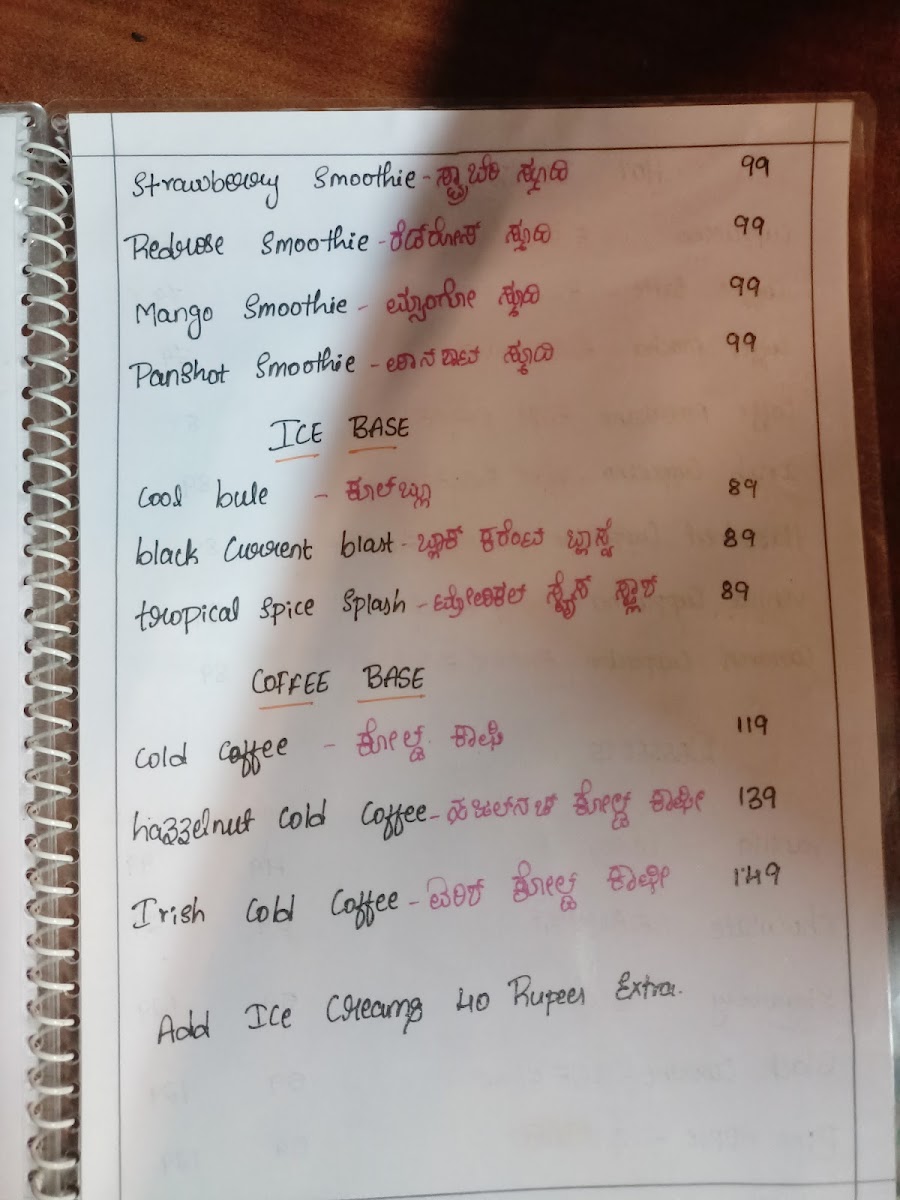 Strawberry Smoothie - ಸ್ಟ್ರಾಬೆರಿ ಸ್ಮೂದಿ 99
Redrose Smoothie - ರೆಡ್‌ರೋಸ್ ಸ್ಮೂದಿ 99
Mango Smoothie - ಮ್ಯಾಂಗೋ ಸ್ಮೂದಿ 99
Panshot Smoothie - ಪಾನಶಾಟ ಸ್ಮೂದಿ 99
ICE BASE
Cool bule - ಕೂಲ್‌ಬ್ಲೂ 89
black Current blast - ಬ್ಲಾಕ್ ಕರೆಂಟ ಬ್ಲಾಸ್ಟ 89
tropical Spice Splash - ಟ್ರೋಪಿಕಲ್ ಸ್ಪೈಸ್ ಸ್ಪ್ಲಾಶ್ 89
COFFEE BASE
Cold Coffee - ಕೋಲ್ಡ ಕಾಫಿ 119
hazzelnut Cold Coffee - ಹಜಲ್‌ನಟ್ ಕೋಲ್ಡ ಕಾಫೀ 139
Irish Cold Coffee - ಐರಿಶ್ ಕೋಲ್ಡ ಕಾಫೀ 149
Add Ice Creams 40 Rupees Extra.